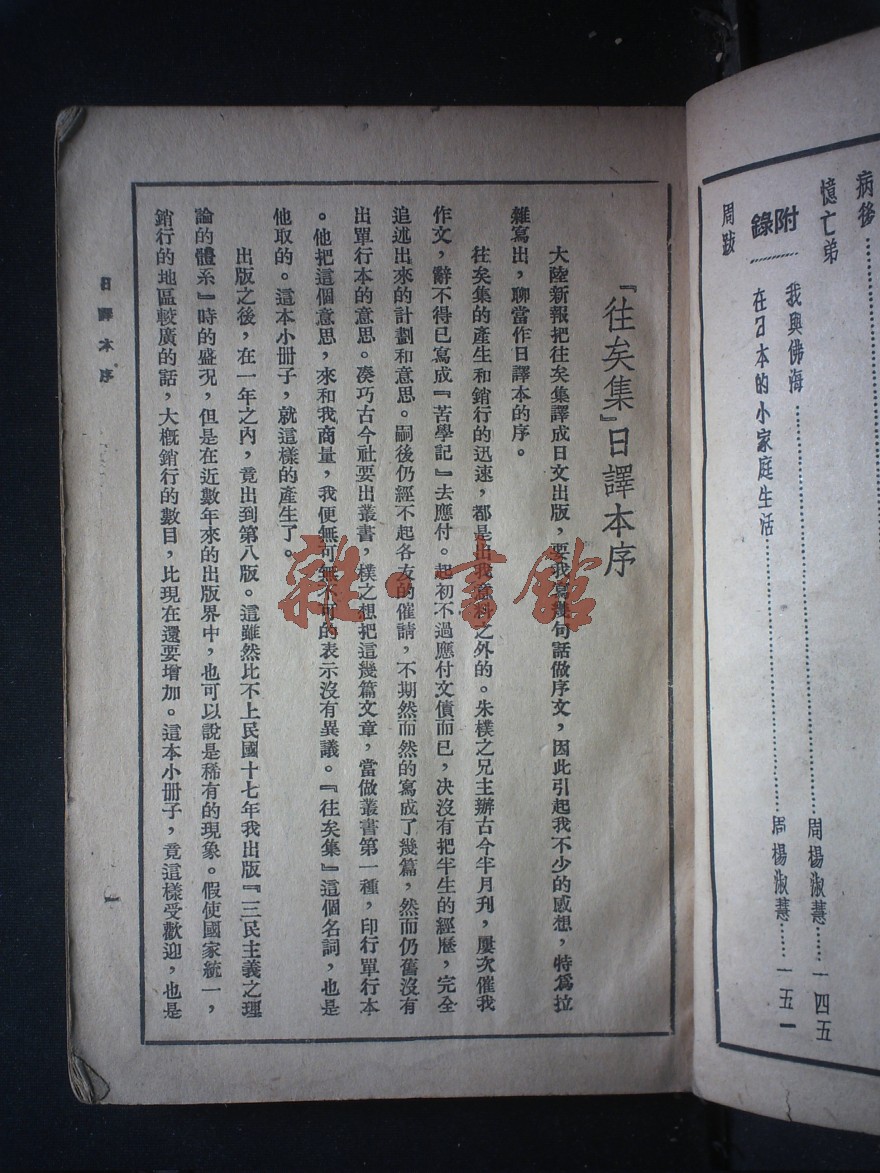 病後
憶亡弟
附錄
我與佛海 周楊淑慧 一四五
在日本的小家庭生活 周楊淑慧 一五一
周跋
『往矣集』日譯本序
大陸新報把往矣集譯成日文出版，要我寫幾句話做序文，因此引起我不少的感想，特爲拉
雜寫出，聊當作日譯本的序。
往矣集的產生和銷行的迅速，都是出我意料之外的。朱樸之兄主辦古今半月刊，屢次催我
作文，辭不得已寫成『苦學記』去應付。起初不過應付文債而已，決沒有把半生的經歷，完全
追述出來的計劃和意思。嗣後仍經不起各友的催請，不期然而然的寫成了幾篇，然而仍舊沒有
出單行本的意思。湊巧古今社要出叢書，樸之想把這幾篇文章，當做叢書第一種，印行單行本
。他把這個意思，來和我商量，我便無可無不可的表示沒有異議。『往矣集』這個名詞，也是
他取的。這本小冊子，就這樣的產生了。
出版之後，在一年之內，竟出到第八版。這雖然比不上民國十七年我出版『三民主義之理
論的體系』時的盛況，但是在近數年來的出版界中，也可以說是稀有的現象。假使國家統一，
銷行的地區較廣的話，大概銷行的數目，比現在還要增加。這本小冊子，竟這樣受歡迎，也是
日譯本序
一
雜·書館